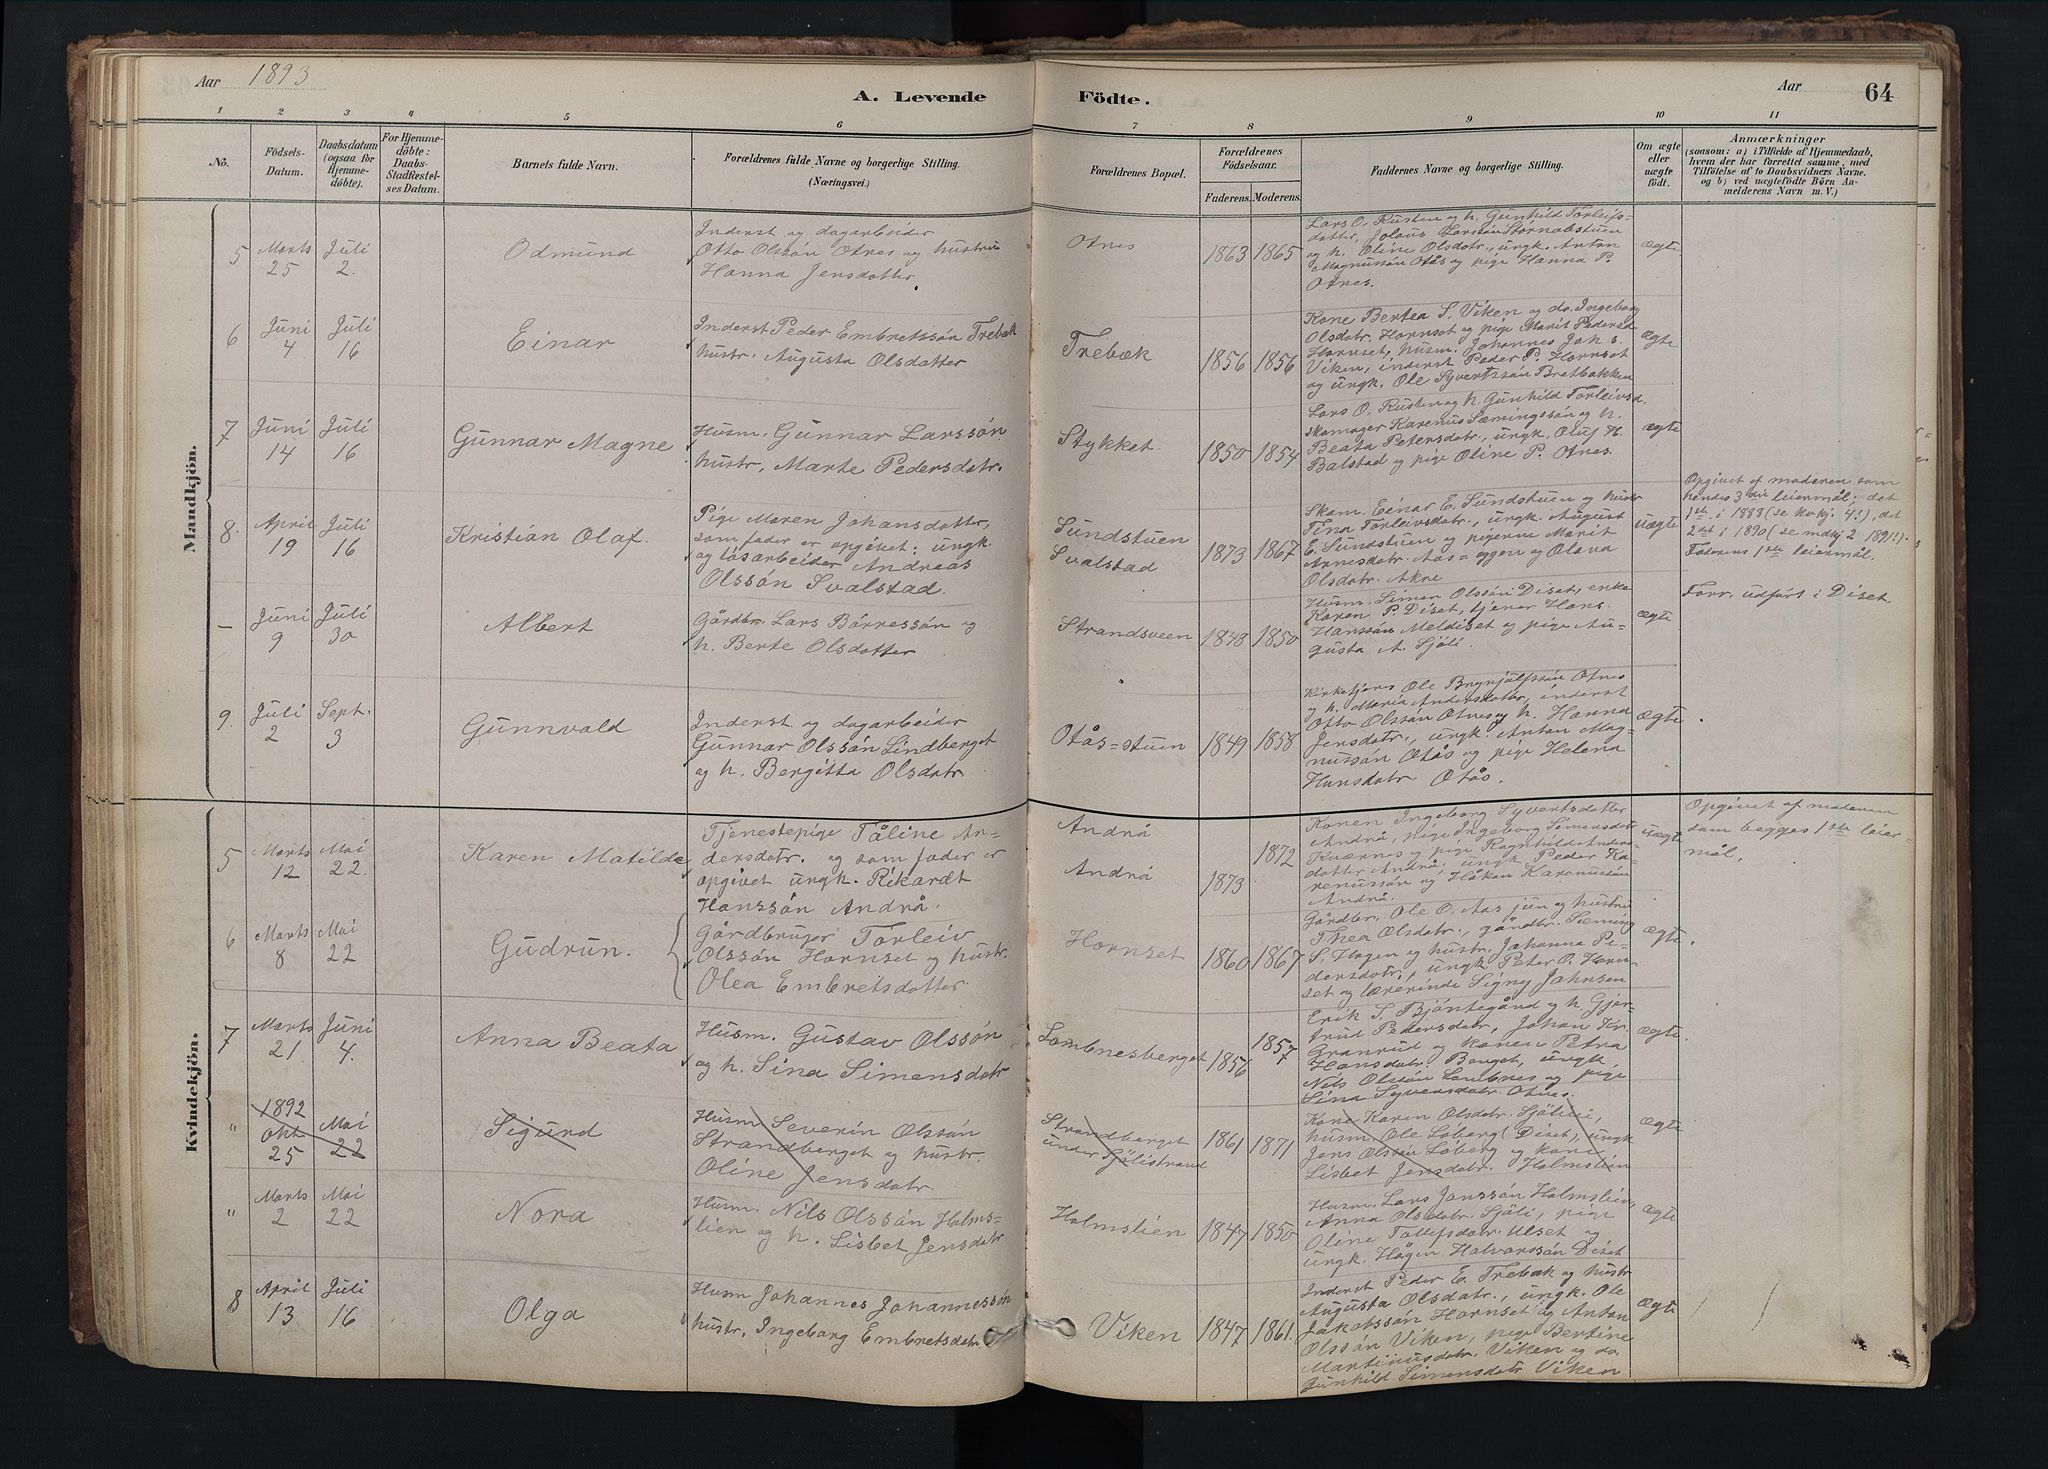 Aar 1893
A. Levende Födte.
Aar 64
1 2 3 4 5 6 7 8 9 10 11
No.
Födsels-
Datum.
Daabsdatum
(ogsaa for
Hjemme-
döbte).
For Hjemme-
döbte:
Daabs-
Stadfæstel-
ses Datum.
Barnets fulde Navn.
Forældrenes fulde Navne og borgerlige Stilling.
(Næringsvei.)
Forældrenes Bopæl.
Forældrenes
Födselsaar.
Faderens. Moderens.
Faddernes Navne og borgerlige Stilling.
Om ægte
eller
uægte
födt.
Anmærkninger
(saasom: a) i Tilfælde af Hjemmedaab,
hvem der har forrettet samme, med
Tilföielse af to Daabsvidners Navne,
og b) ved uægtefödte Börn An-
melderens Navn m. V.)
Mandkjön.
5
Marts
25
Juli
2.
Odmund
Inderst og dagarbeider
Otto Olssön Otnes og hustru
Hanna Jensdatter.
Otnes
1863 1865
Lars O. Rusten og h. Gunhild Torleifs-
datter, Jolaus Larssön Stornabstuen
og h. Oline Olsdatr., ungk. Anton
Magnussön Otås og pige Hanna P.
Otnes.
ægte
6
Juni
4
Juli
16
Einar
Inderst Peder Embretssön Trebæk
hustr. Augusta Olsdatter
Trebæk
1856 1856
Kone Bertea S. Viken og do. Ingeborg
Olsdatr. Hornset og pige Marit Pedersd.
Hornset, husm. Johannes Jak s.
Viken, inderst Peder P. Hornset
og ungk. Ole Syvertssön Bratbakken
ægte
7
Juni
14
Juli
16
Gunnar Magne
Husm. Gunnar Larssön
hustr. Marte Pedersdatr.
Stykket
1850 1854
Lars O. Rusten og h. Gunhild Torleivsd.
skomager Karenus Sæmingssön og h.
Beata Petersdatr., ungk. Oluf H.
Balstad og pige Oline P. Otnes.
ægte
8.
April
19
Juli
16
Kristian Olaf.
Pige Maren Johansdatter,
som fader er opgivet: ungk.
og løsarbeider Andreas
Olssön Svalstad.
Sundstuen
Svalstad
1873 1867
Skom. Einar E. Sundstuen og hustr
Tina Torleivsdatr., ungk. August
E. Sundstuen og pigerne Marit
Arnesdatr. Aas=eggen og Olava
Olsdatr. Akre
uægte
Opgivet af moderen som
hendes 3die leiermål; det
1ste i 1888 (se kvkj. 4!), det
2det i 1890 (se mdkj 2 1891!).
Faderens 1ste leiermål.
—
Juni
9
Juli
30
Albert
Gårdbr. Lars Börressön og
h. Berte Olsdatter
Strandsveen
1848 1850
Husm. Simen Olssön Diset, enke
Karen P. Diset, tjener Hans
Hanssön Meldiset og pige Au-
gusta A. Sjöli.
ægte
Forr. udfört i Diset
9.
Juli
2
Sept.
3
Gunnvald
Inderst og dagarbeider
Gunnar Olssön Lindberget
og h. Bergitta Olsdatr.
Otås=stuen
1849 1858
Kirketjener Ole Brynjulfssön Otnes
og h. Maria Andersdatr, inderst
Otto Olssön Otnes og h. Hanna
Jensdatr., ungk. Anton Mag-
nussön Otås og pige Helena
Hansdatr Otås.
ægte
Kvindekjön.
5
Marts
12
Mai
22.
Karen Matilde
Tjenestepige Tåline An-
dersdatr. og som fader er
opgivet ungk. Rikardt
Hanssön Andrå.
Andrå
Andrå
1873 1872
Konen Ingeborg Syvertsdatter
Andrå, pige Ingeborg Simensdatr
Kværnes og pige Ragnhild Anders-
datter Andrå, ungk Peder Ka-
renussön og Håkon Karenussön
Andrå.
uægte
Opgivet af moderen
som begges 1ste leier
mål.
6
Marts
8
Mai
22
Gudrun.
Gårdbruger Torleiv
Olssön Hornset og hustr.
Olea Embretsdatter.
Hornset
1860 1867
Gårdbr. Ole O. Aas jun og hustru
Thea Olsdatr., gårdbr. Sæming
S. Hagen og hustr. Johanna Pe-
dersdatr., ungk Peter O. Horn-
set og lærerinde Signy Jahnsen
ægte
7
Marts
21.
Juni
4.
Anna Beata
Husm. Gustav Olssön
og h. Sina Simensdatr
Lombnesberget
1856 1857
Erik S. Bjöntegård og h. Gjer-
trud Pedersdatr., Johan Kr.
Granrud og konen Petra
Hansdatr. Berget, ungk
Nils Olssön Lombnes og pige
Sina Syversdatr. Otnes.
ægte
"
1892
Okt
25
Mai
22
Sigurd
Husm Severin Olssön
Strandberget og hustr.
Oline Jensdatr.
Strandberget
under Sjölistrand
1861 1871
Kone Karen Olsdatr. Sjölien,
husm. Ole Löberg (Diset), ungk
Jens Olssön Löberg og kone
Lisbet Jensdatr. Holmslien
ægte
"
Marts
2
Mai
22
Nora
Husm. Nils Olssön Holms-
lien og h. Lisbet Jensdatr
Holmslien
1847 1850
Husm. Lars Janssön Holmslien,
Anna Olsdatr. Sjöli, pige
Oline Tollefsdatr. Ulset og
ungk. Hågen Halvorssön Diset
ægte
8
April
13
Juli
16
Olga
Husm Johannes Johannessön
hustr. Ingeborg Embretsdatr.
Viken
1847 1861.
Inderst Peder E. Trebæk og hustr
Augusta Olsdatr., ungk. Ole
Jakobssön Hornset og Anton
Olssön Viken, pige Bertine
Martinusdatr. Viken og do.
Gunhild Simensdatr Viken
ægte